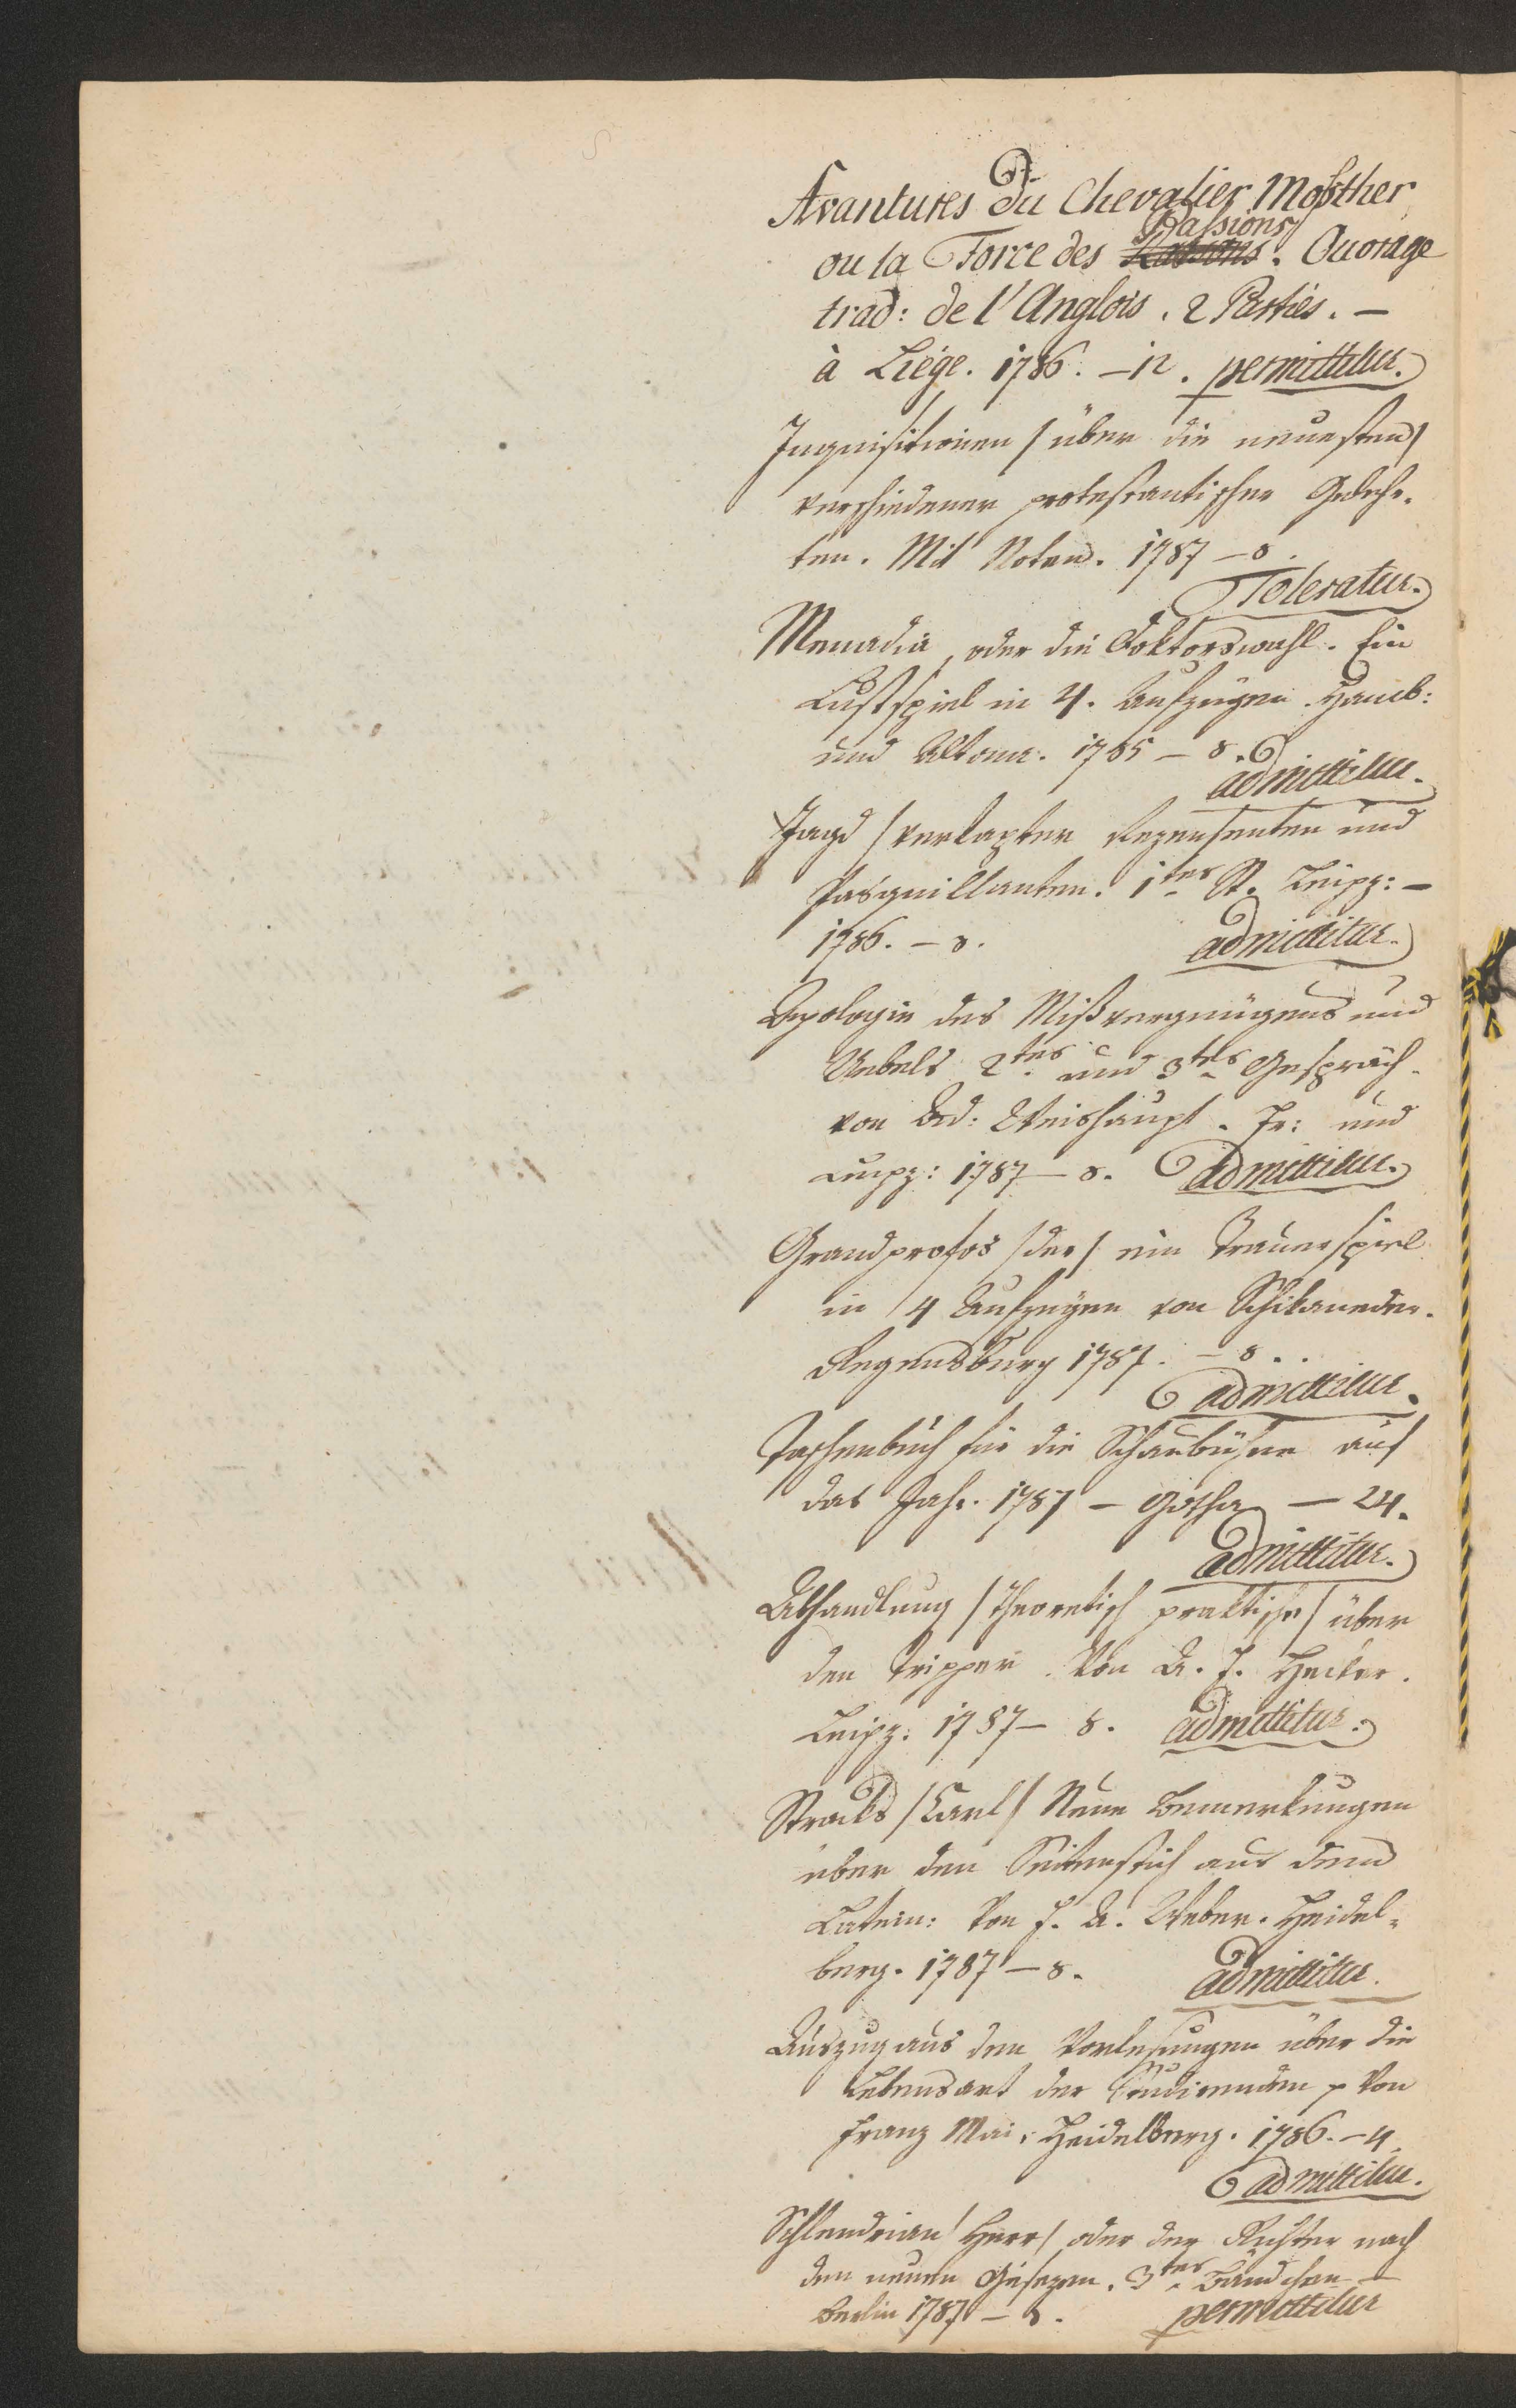 Avantures du Chevalier Mossther
Passions
ou la Force des Rassons. Ouvrage
trad: de l'Anglois. 2 Parties. —
à Liége. 1786. — 12. permittitur.
Inquisitionen /: über die neuesten /
verschiedener protestantischer Gelehr-
ten. Mit Noten. 1787 — 8.
Toleratur.
Menadia, oder die Doktorswahl. Ein
Lustspiel in 4. Aufzügen. Hamb:
und Altona. 1785 — 8.
admittitur.
Jagd / verkapter Rezensenten und
Pasquillanten. 1tes St. Leipz: —
1786. — 8. admittitur.
Apologie des Mißvergnügens und
Uebels 2tes und 3tes Gespräch.
von Ad: Weishaupt. Fr: und
Leipz: 1787 — 8. admittitur.
Grandprofos / der / ein Trauerspiel
in 4 Aufzugen von Schikaneder.
Regensburg 1787. — 8.
admittitur.
Taschenbuch für die Schaubühne auf
das Jahr. 1787 — Gotha — 24.
admittitur.
Abhandlung / theoretisch praktische / über
den Tripper. Von A. F. Hecker.
Leipz: 1787 — 8. admittitur.
Stracks / Carl / Neue Bemerkungen
über den Seitenstich aus dem
Latein: Von F. A. Weber. Heidel-
berg. 1787 — 8. admittitur.
Auszug aus den Vorlesungen über die
Lebensart der Studirenden p Von
Franz Mai. Heidelberg. 1786. — 4.
admittitur.
Schlendrian / Herr / oder der Richter nach
den neuen Gesezen. 3tes Bändchen —
Berlin 1787 — 8. permittitur